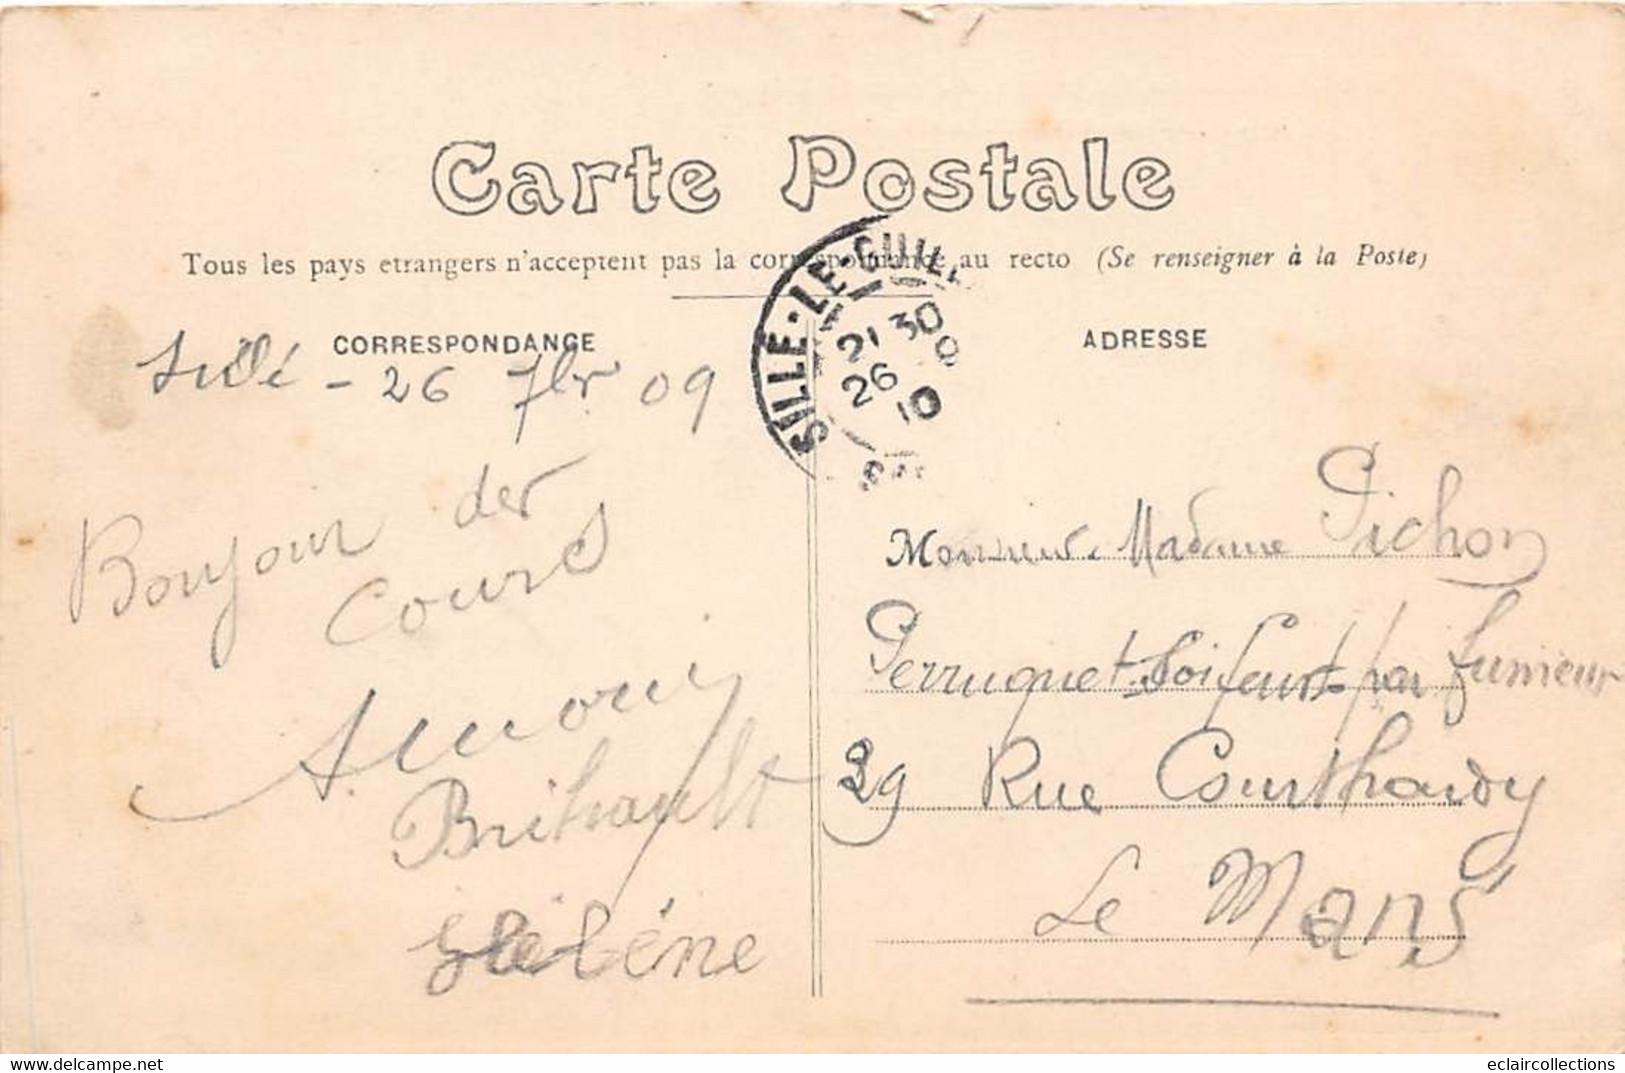 Carte Postale
Tous les pays etrangers n'acceptent pas la correspondance au recto (Se renseigner à la Poste)
CORRESPONDANCE
ADRESSE
SILLÉ-LE-GUIL
21 30
26 9
10
Sillé - 26 7br 09
Bonjour des
Cours
Brihault
Hélène
Monsieur Madame Pichon
Perruquet Coifeur parfumeur
39 Rue Courthardy
Le Mans
www.delcampe.net
eclaircollections